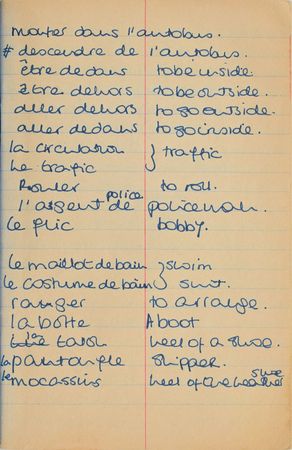 monter dans l'autobus.
# descendre de l'autobus.
être dedans to be inside.
être dehors to be outside.
aller dehors to go outside.
aller dedans to go inside.
la circulation } traffic
le trafic
Rouler to roll.
l'argent de police policeman.
le flic bobby.
le maillot de bain } swim
le costume de bain } suit.
ranger to arrange.
la botte A boot
la talon heel of a shoe.
la pantoufle slipper.
le mocassins heel of the leather shoe